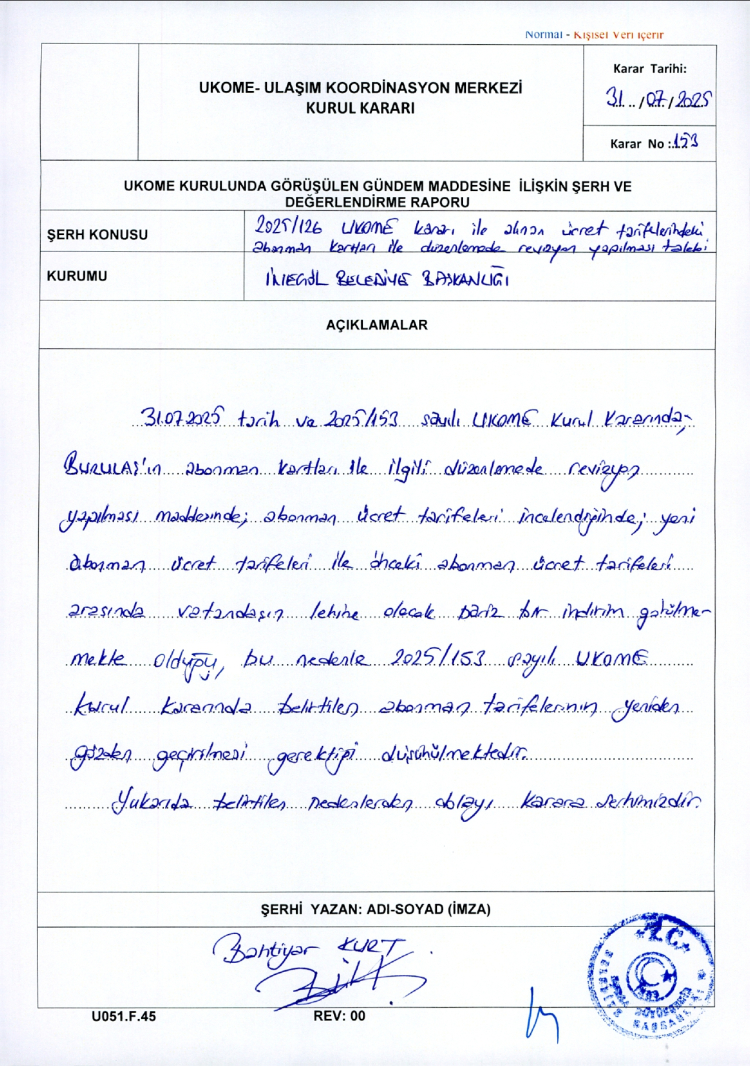 Normal - Kişisel Veri İçerir
UKOME- ULAŞIM KOORDİNASYON MERKEZİ
KURUL KARARI
Karar Tarihi:
31../07./2025
Karar No :153
UKOME KURULUNDA GÖRÜŞÜLEN GÜNDEM MADDESİNE İLİŞKİN ŞERH VE
DEĞERLENDİRME RAPORU
ŞERH KONUSU
2025/126 UKOME kararı ile alınan ücret tarifelerindeki
abonman kartları ile düzenlemede revizyon yapılması talebi
KURUMU
İNEGÖL BELEDİYE BAŞKANLIĞI
AÇIKLAMALAR
31.07.2025 tarih ve 2025/153 sayılı UKOME Kurul Kararında,
BURULAŞ'ın abonman kartları ile ilgili düzenlemede revizyon
yapılması maddesinde; abonman ücret tarifeleri incelendiğinde; yeni
abonman ücret tarifeleri ile önceki abonman ücret tarifeleri
arasında vatandaşın lehine olacak bariz bir indirim görülme-
mekte olduğu, bu nedenle 2025/153 sayılı UKOME
kurul kararında belirtilen abonman tarifelerinin yeniden
gözden geçirilmesi gerektiği düşünülmektedir.
Yukarıda belirtilen nedenlerden dolayı karara şerhimizdir.
ŞERHİ YAZAN: ADI-SOYAD (İMZA)
Bahtiyar KURT
T.C.
U051.F.45
REV: 00